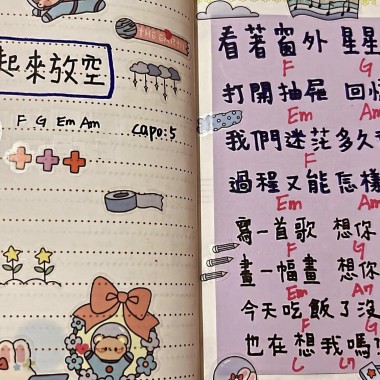 起來放空
F G Em Am
capo:5
看著窗外 星星
F G
打開抽屜 回憶
Em Am
我們迷茫多久
F
過程又能怎樣
Em Am
寫一首歌 想你
F G
畫一幅畫 想你
Em Am
今天吃飯了沒
F G
也在想我嗎